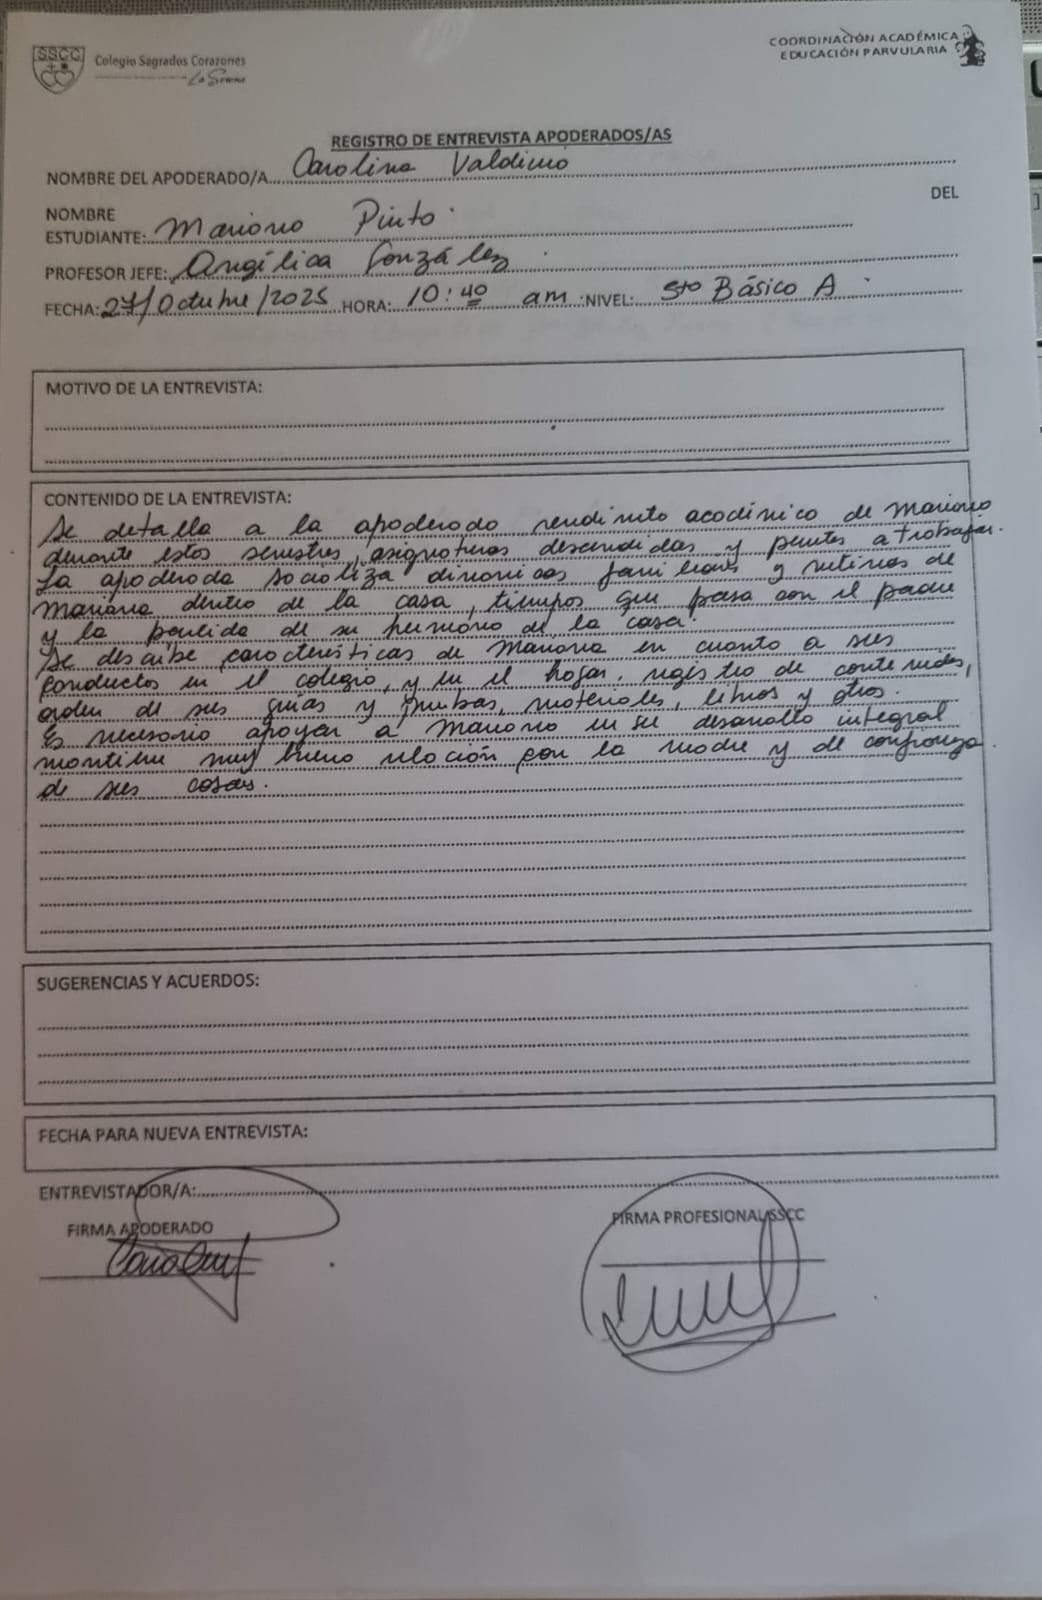 SSCC
Colegio Sagrados Corazones
La Serena
COORDINACIÓN ACADÉMICA
EDUCACIÓN PARVULARIA
REGISTRO DE ENTREVISTA APODERADOS/AS
NOMBRE DEL APODERADO/A Carolina
NOMBRE DEL
ESTUDIANTE: Mariana Pinto.
PROFESOR JEFE: Angélica González.
FECHA: 27/Octubre/2025 HORA: 10:40 am NIVEL: 5to Básico A
MOTIVO DE LA ENTREVISTA:
CONTENIDO DE LA ENTREVISTA:
Se detalla a la apoderada acadímico de Mariana
durante estos asignaturas descendidas y a trabajar.
La apoderada socializa dinamicas familiares y rutinas de
Mariana dentro de la casa, tiempos que pasa con el padre
y la partida de su hermano de la casa.
Se describe características de Mariana en cuanto a sus
conductas en el colegio, y en el hogar, registro de contenidos,
orden de sus guías y pruebas, materiales, libros y otros.
Es necesario apoyar a Mariana en su desarrollo integral
mantiene muy buena relación con la madre y de confianza
de sus cosas.
SUGERENCIAS Y ACUERDOS:
FECHA PARA NUEVA ENTREVISTA:
ENTREVISTADOR/A:
FIRMA APODERADO
FIRMA PROFESIONAL SSCC